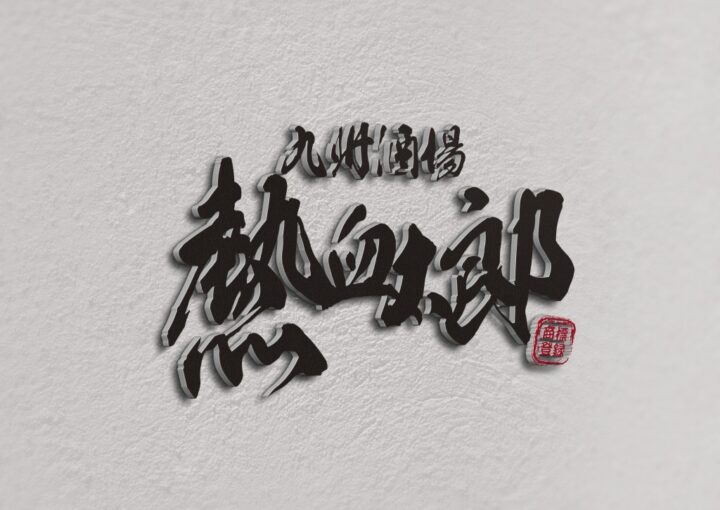 九州酒場
熱血太郎